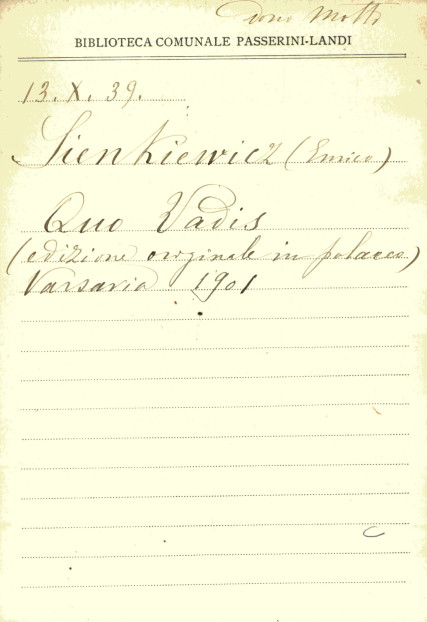 Dono Motti
BIBLIOTECA COMUNALE PASSERINI-LANDI
13. X. 39.
Sienkiewicz (Enrico)
Quo Vadis
(edizione originale in polacco)
Varsavia 1901